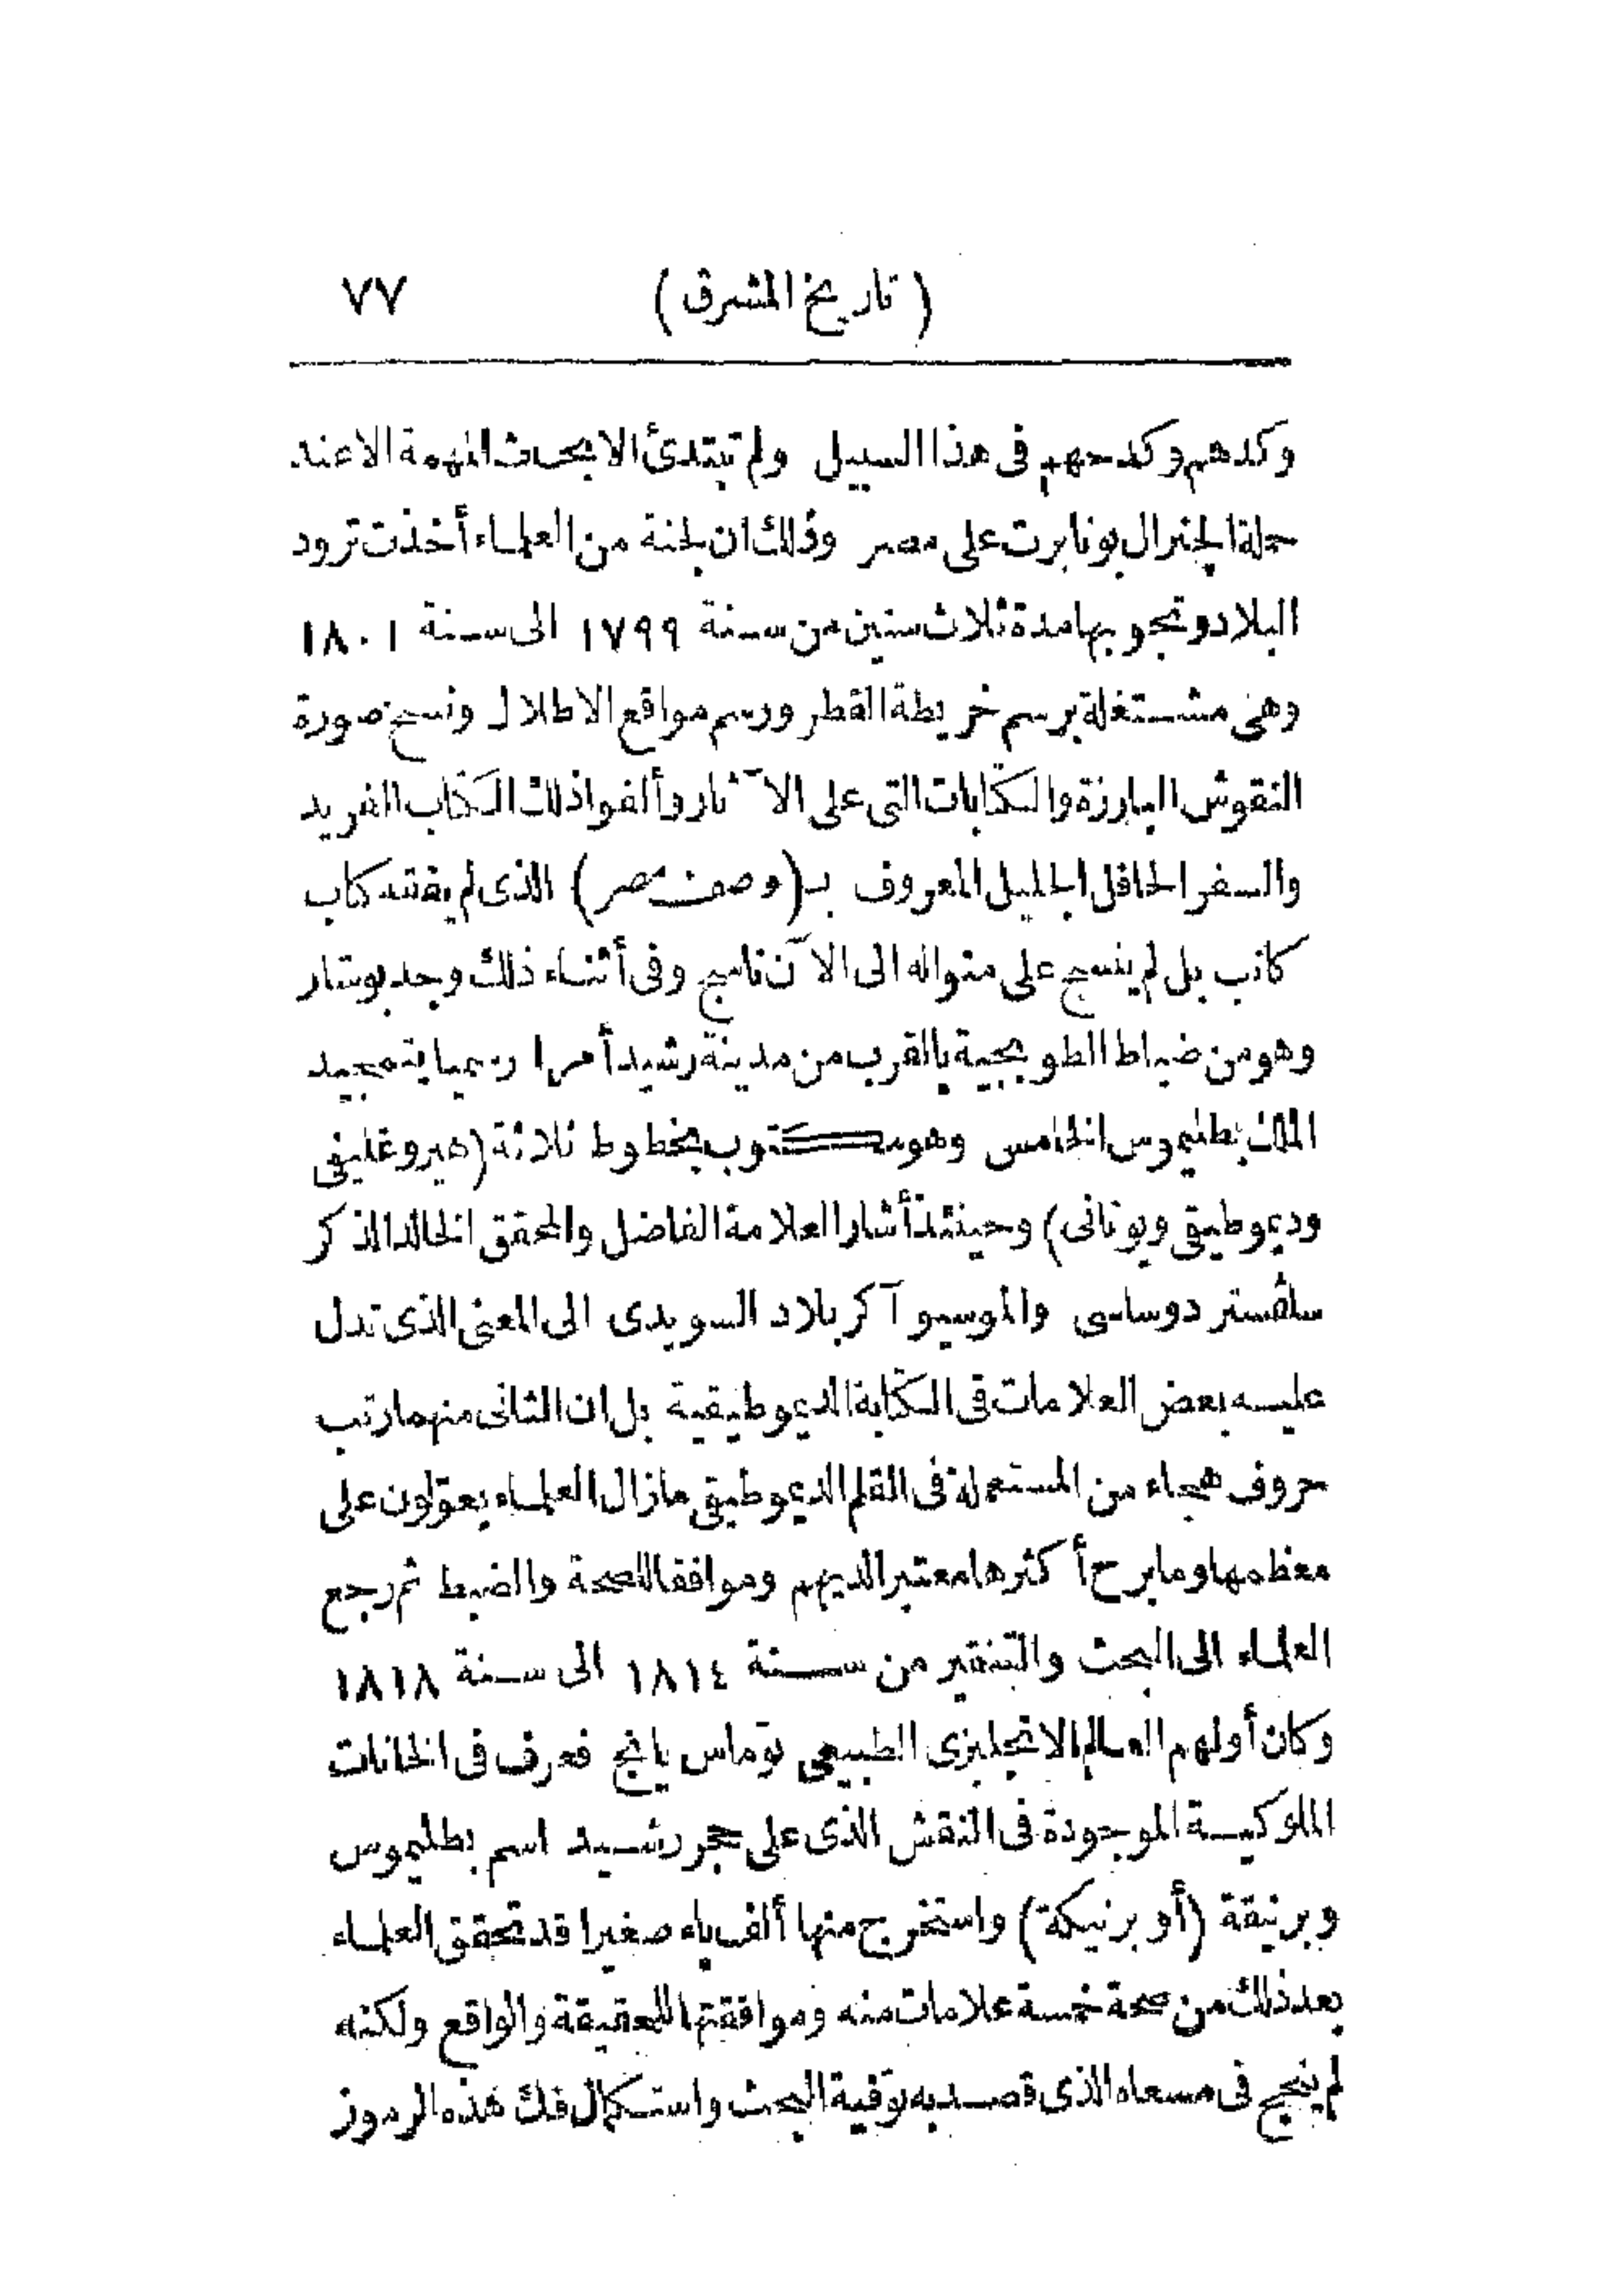 ( تاريخ المشرق ) ٧٧
وكدهم وكدحهم فى هذا السبيل ولم تبتدئ الابحاث المهمة الا عند
حملة الجنرال بونابرت على مصر وذلك ان لجنة من العلماء أخذت ترود
البلاد وتجوبها مدة ثلاث سنين من سنة ١٧٩٩ الى سنة ١٨٠١
وهى مشتغلة برسم خريطة القطر ورسم مواقع الاطلال ونسخ صورة
النقوش البارزة والكتابات التى على الآثار وألفوا ذلك الكتاب الفريد
والسفر الحافل الجليل المعروف بـ (وصف مصر) الذى لم يقته كتاب
كاتب بل لم ينسج على منواله الى الآن ناسج وفى أثناء ذلك وجد بوشار
وهو من ضباط الطوبجية بالقرب من مدينة رشيد أمرا رسميا بتمجيد
الملك بطليموس الخامس وهو مكتوب بخطوط ثلاثة (هيروغليفى
وديموطيقى ويونانى) وحينئذ أشار العلامة الفاضل والمحقق الخالد الذكر
سلڤستر دوساسى والموسيو آكر بلاد السويدى الى المعنى الذى تدل
عليه بعض العلامات فى الكتابة الديموطيقية بل ان الثانى منهما رتب
حروف هجاء من المستعملة فى القلم الديموطيقى مازال العلماء يعوّلون على
معظمها وما برح أكثرها معتبرا لديهم وموافقا للصحة والضبط ثم رجع
العلماء الى البحث والتنقير من سنة ١٨١٤ الى سنة ١٨١٨
وكان أولهم العالم الانجليزى الطبيعى توماس يانج فعرف فى الخانات
الملوكية الموجودة فى النقش الذى على حجر رشيد اسم بطليموس
وبرنيقة (أو برنيكة) واستخرج منها ألف باء صغيرا قد تحقق العلماء
بعد ذلك من صحة خمسة علامات منه وموافقتها للحقيقة والواقع ولكنه
لم ينجح فى مسعاه الذى قصد به توفية البحث واستكمال فك هذه الرموز